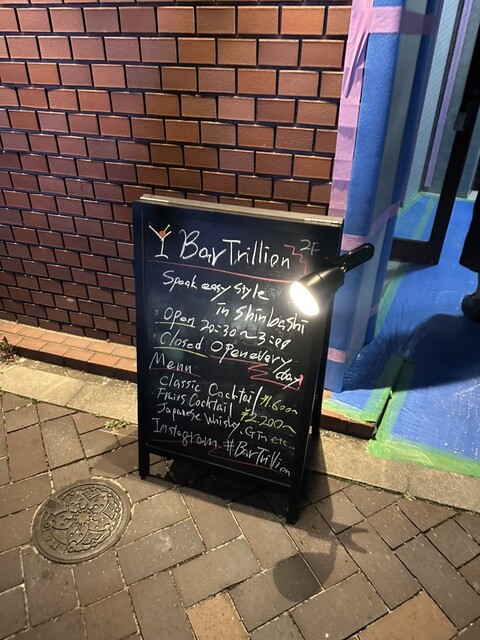 Bar Trillion 2F
Speak easy style
in Shinbashi
Open 20:30~3:00
Closed Open every day
Menu
Classic Cocktail ¥1.600~
Fruits Cocktail ¥2.200~
Japanese Whisky, Gin etc...
Instagram #BarTrillion